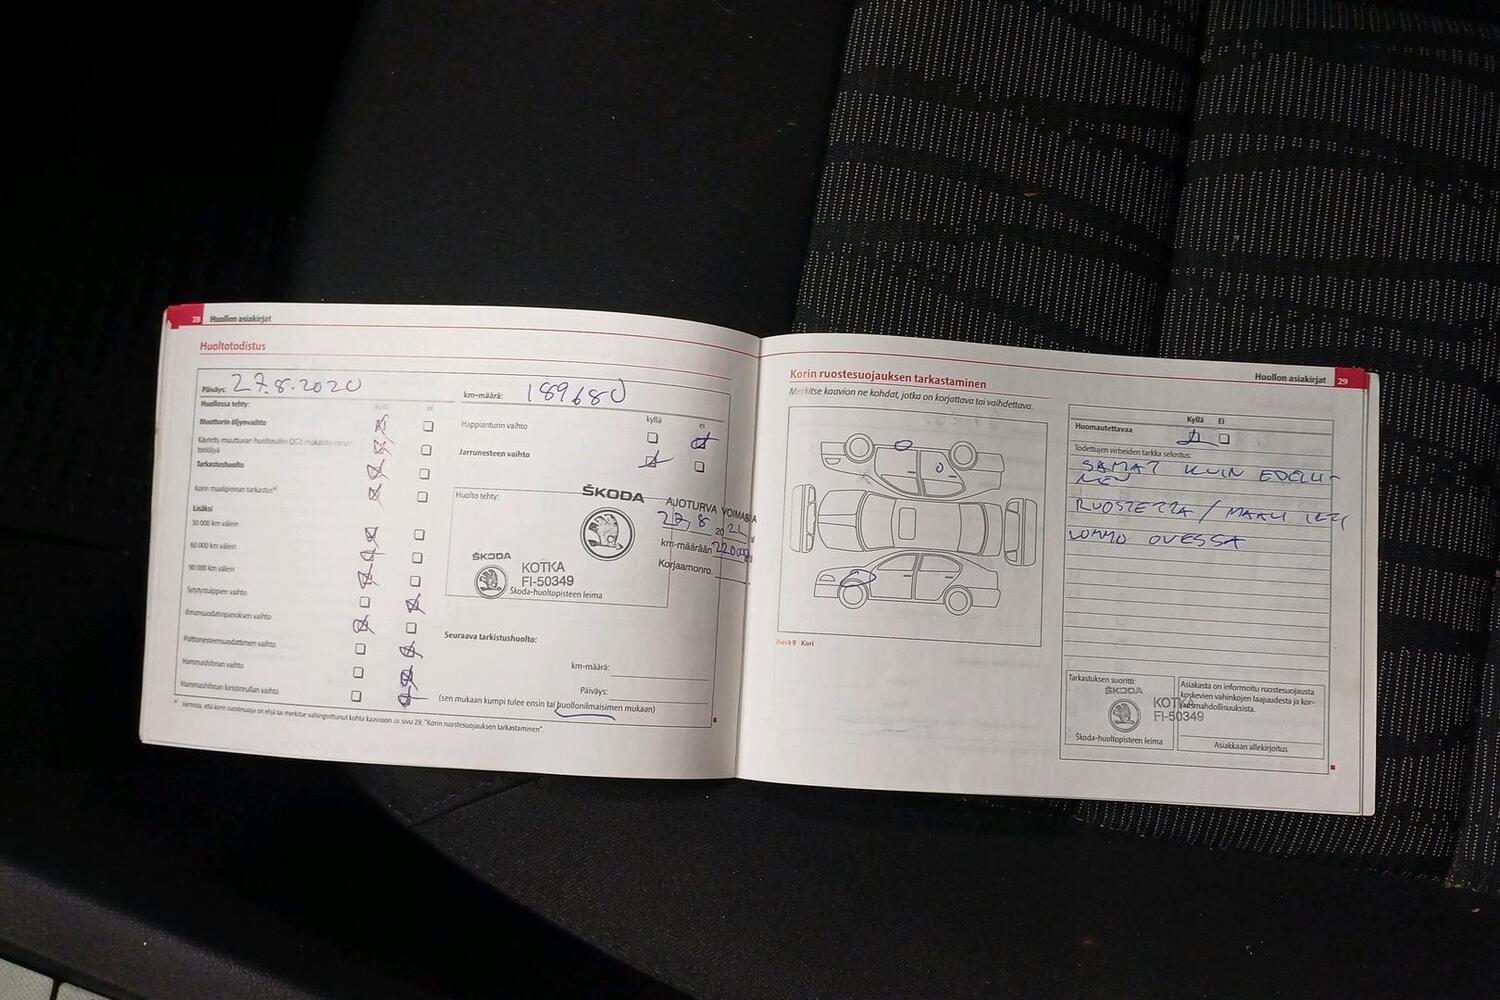 28 Huollon asiakirjat
Huoltotodistus
Päiväys: 27.8.2020
km-määrä: 189680
Huollossa tehty:
kyllä ei
Moottorin öljynvaihto
Käytetty muuttuvan huoltovälin QG1 mukaista
Tarkastushuolto
Korin maalipinnan tarkastus
Lisäksi
30 000 km välein
60 000 km välein
90 000 km välein
Sytytystulppien vaihto
Ilmansuodatinpanoksen vaihto
Polttonesteensuodattimen vaihto
Hammashihnan vaihto
Hammashihnan kiristinrullan vaihto
kyllä ei
Happianturin vaihto
Jarrunesteen vaihto
Huolto tehty:
ŠKODA
ŠKODA
KOTKA
FI-50349
Škoda-huoltopisteen leima
AJOTURVA VOIMASSA
27.8 2021
km-määrään
Korjaamonro.
Seuraava tarkistushuolto:
km-määrä:
Päiväys:
(sen mukaan kumpi tulee ensin tai huollonilmaisimen mukaan)
Varmista, että korin ruostesuoja on ehjä tai merkitse vahingoittunut kohta kaavioon ⇨ sivu 29, "Korin ruostesuojauksen tarkastaminen".
Huollon asiakirjat 29
Korin ruostesuojauksen tarkastaminen
Merkitse kaavion ne kohdat, jotka on korjattava tai vaihdettava.
Kuva 9 Kori
Kyllä Ei
Huomautettavaa
Todettujen virheiden tarkka selostus:
SAMAT KUIN EDELLI-
NEN
RUOSTETTA / MAALI
LOMMO OVESSA
Tarkastuksen suoritti:
ŠKODA
KOTKA
FI-50349
Škoda-huoltopisteen leima
Asiakasta on informoitu ruostesuojausta
koskevien vahinkojen laajuudesta ja kor-
jausmahdollisuuksista.
Asiakkaan allekirjoitus